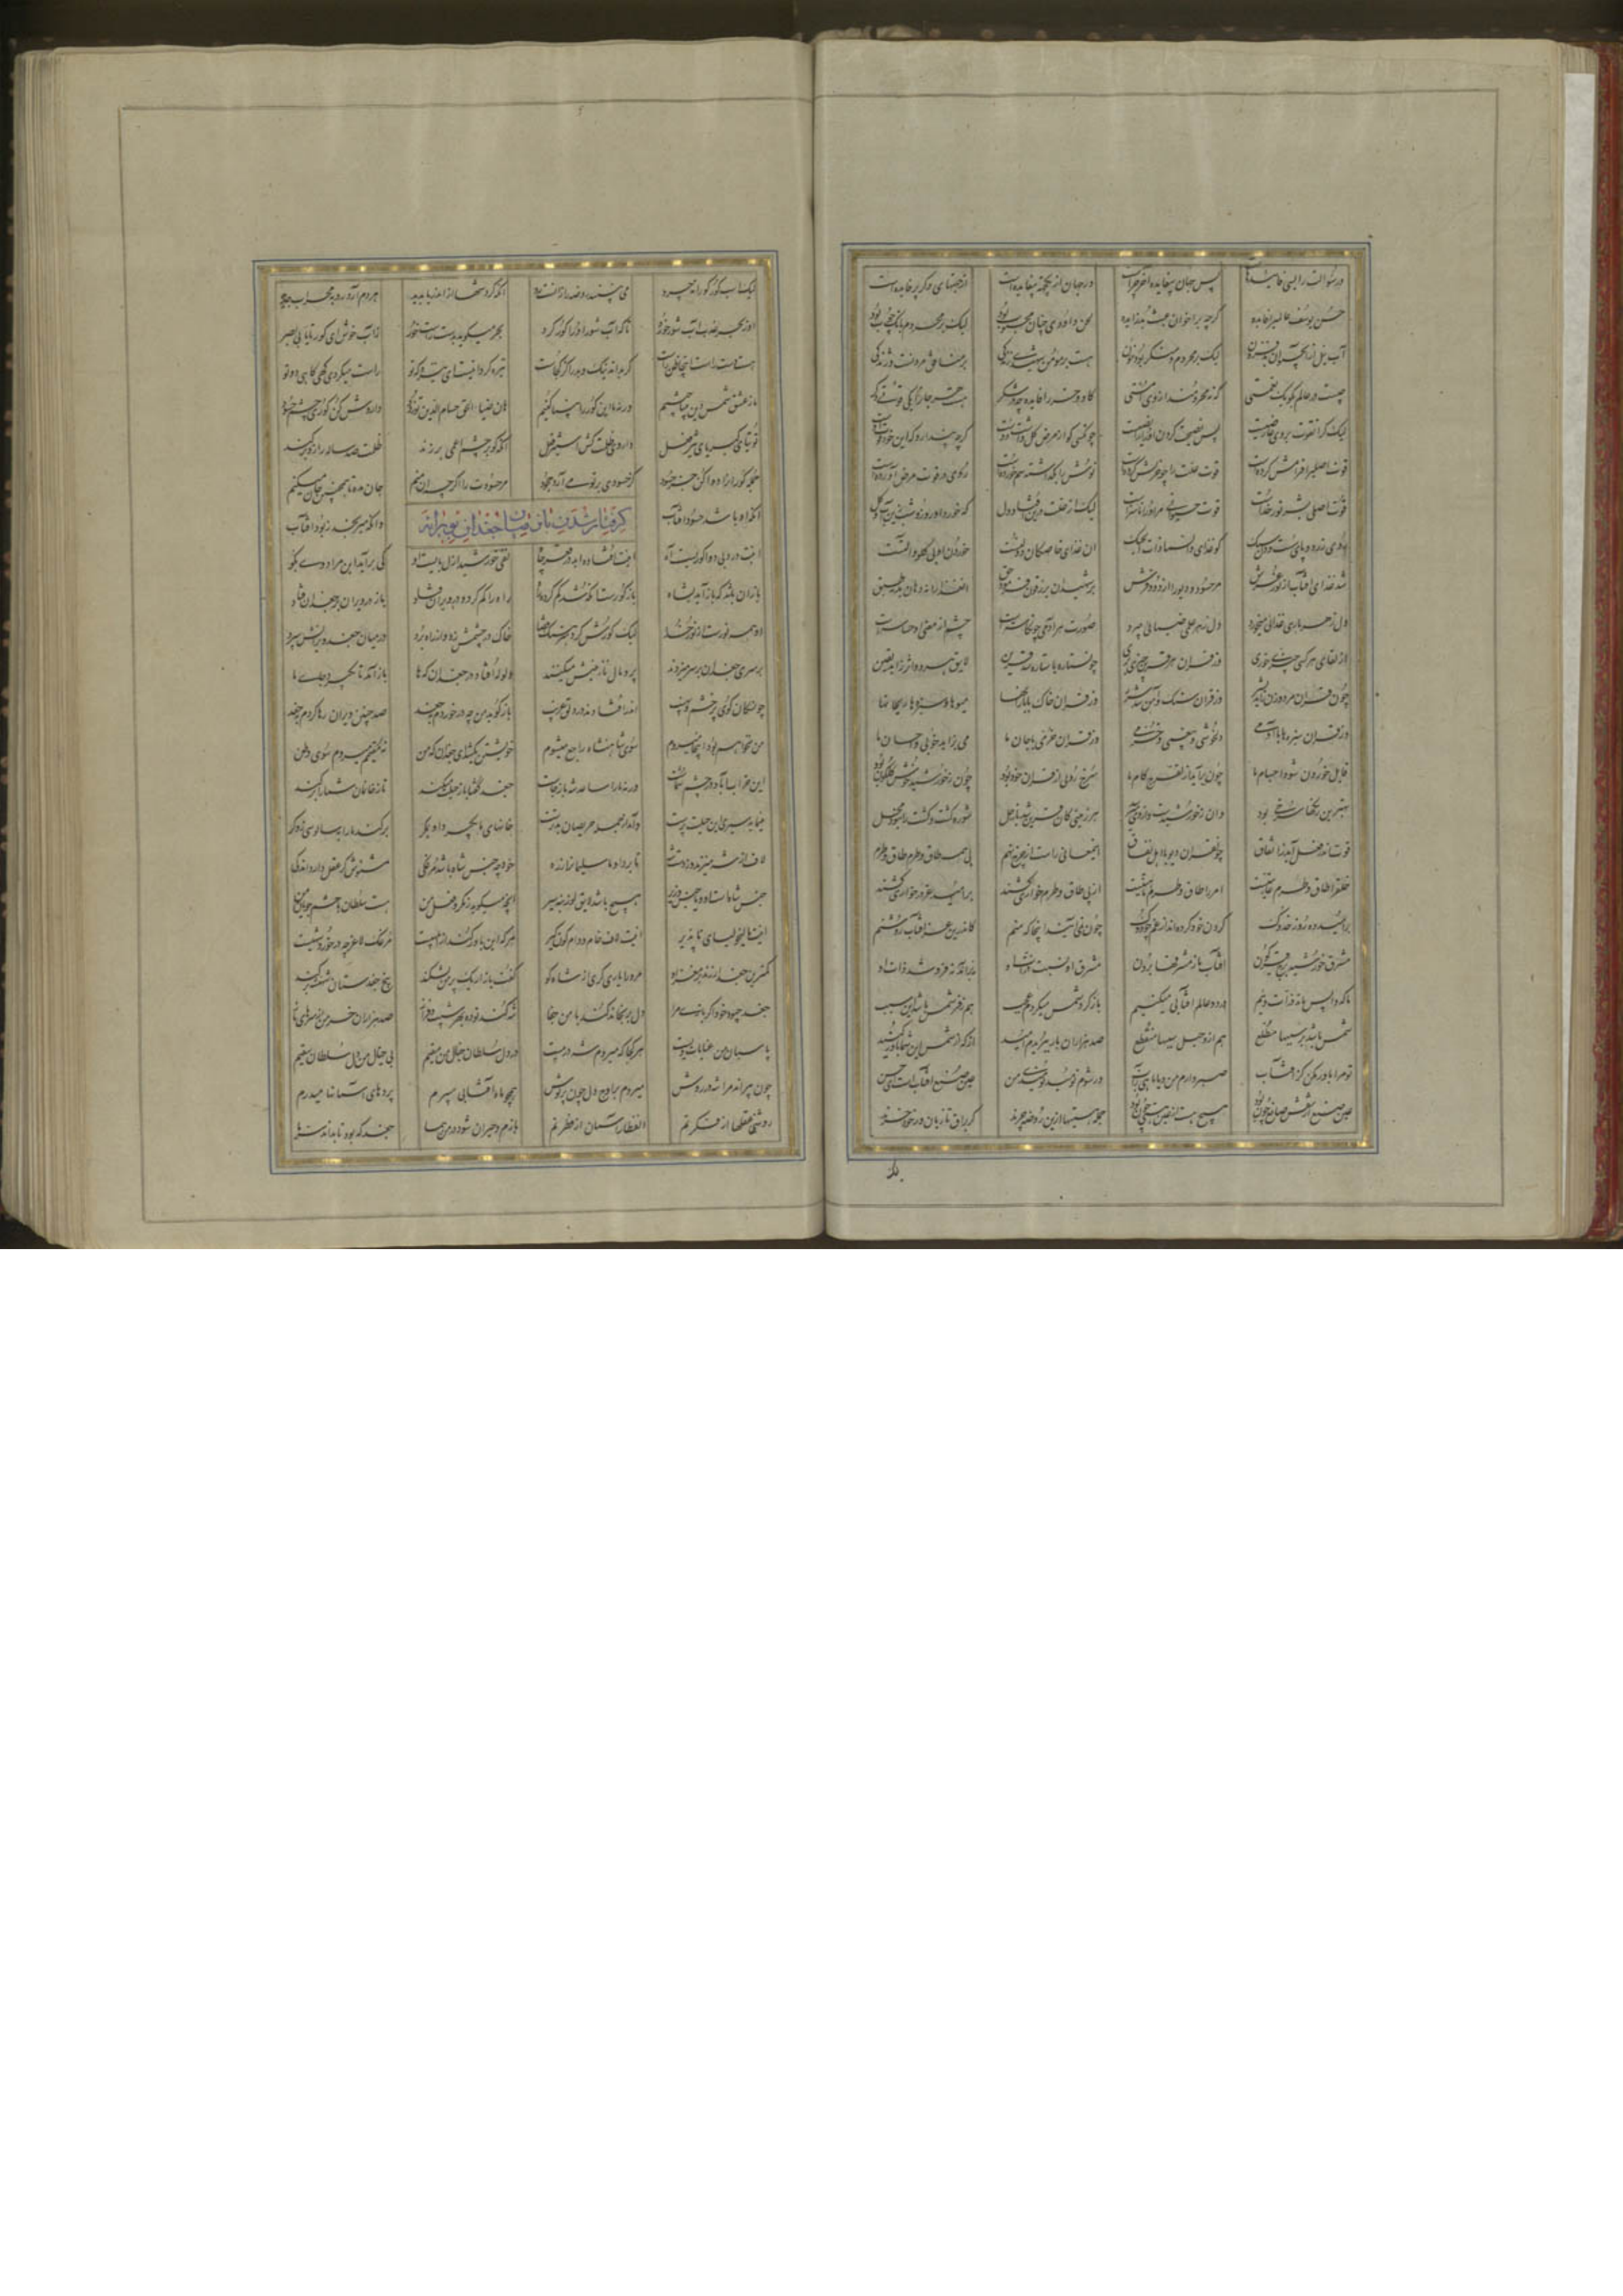 ور سؤالت را بسی فایده‌هاست پس جهان بی‌فایده آخر چراست ور جهان از یک جهت بی‌فایده است از جهتهای دگر پر عایده است
حسن یوسف عالمی را فایده گرچه بر اخوان عبث بد زایده لحن داودی چنان محبوب بود لیک بر محروم بانگ چوب بود
آب نیل از آب حیوان بد فزون لیک بر محروم و منکر بود خون هست بر مؤمن شهیدی زندگی بر منافق مردنست و ژندگی
چیست در عالم بگو یک نعمتی که نه محرومند از وی امتی گاو و خر را فایده چه در شکر هست هر جان را یکی قوتی دگر
لیک گر آن قوت بر وی عارضیست پس نصیحت کردن او را رایضیست چون کسی کو از مرض گل داشت دوست گرچه پندارد که این خود قوت اوست
قوت اصلی را فرامش کرده است قوت علت را چو قوتش کرده است نوش را بگذاشته سم خورده است روی در قوت مرض آورده است
قوت اصلی بشر نور خداست قوت حیوانی مر او را ناسزاست لیک از علت درین افتاد دل که خورد او روز و شب زین آب و گل
روی زرد و پای سست و دل سبک کو غذای والسما ذات الحبک آن غذای خاصگان دولتست خوردن او بی گلو و آلتست
شد غذای آفتاب از نور عرش مر حسود و دیو را از دود فرش در شهیدان یرزقون فرمود حق آن غذا را نه دهان بد نه طبق
دل ز هر یاری غذایی میخورد دل ز هر علمی صفایی میبرد صورت هر آدمی چون کاسه‌ایست چشم از معنی او حساسه‌ایست
از لقای هر کسی چیزی خوری وز قران هر قرین چیزی بری چون ستاره با ستاره شد قرین لایق هر دو اثر زاید یقین
چون قران مرد و زن زاید بشر وز قران سنگ و آهن شد شرر وز قران خاک با بارانها میوها و سبزه و ریحانها
وز قران سبزه‌ها با آدمی دلخوشی و بیغمی و خرمی وز قران خرمی با جان ما می بزاید خوبی و احسان ما
قابل خوردن شود اجسام ما چون برآید از تفرج کام ما سرخ رویی از قران خون بود خون ز خورشید خوش گلگون بود
بهترین رنگها سرخی بود وان ز خورشیدست و از وی میرسد هر زمینی کان قرین شد با زحل شوره گشت و کشت را نبود محل
قوت اندر فعل آید ز اتفاق چون قران دیو با اهل نفاق این معانی راست از چرخ نهم بی همه طاق و طرم طاق و طرم
خلق را طاق و طرم عاریتست امر را طاق و طرم ماهیتست از پی طاق و طرم خواری کشند بر امید عز در خواری خوشند
بر امید عز ده روزه خدوک گردن خود کرده‌اند از غم چو دوک چون نمی‌آیند اینجا که منم کاندرین عز آفتاب روشنم
مشرق خورشید برج قیرگون آفتاب ما ز مشرقها برون مشرق او نسبت ذرات او نه برآمد نه فرو شد ذات او
ما که واپس مانده ذرات وییم در دو عالم آفتابی بی فییم باز گرد شمس میگردم عجب هم ز فر شمس باشد این سبب
شمس باشد بر سببها مطلع هم ازو حبل سببها منقطع صد هزاران بار ببریدم امید از که از شمس این شما باور کنید
تو مرا باور مکن کز آفتاب صبر دارم من و یا ماهی ز آب ور شوم نومید نومیدی من عین صنع آفتابست ای حسن
عین صنع از نفس صانع چون برد هیچ هست از غیر هستی چون چرد جمله هستیها ازین روضه چرند گر براق و تازیان ور خود خرند
لیک اسب کور کورانه چرد می نبیند روضه را زانست رد آنکه گردشها از آن دریا ندید هر دم آرد رو به محرابی جدید
او ز بحر عذب آب شور خورد تا که آب شور او را کور کرد بحر میگوید به دست راست خور ز آب من ای کور تا یابی بصر
هست دست راست اینجا ظن راست کو بداند نیک و بد را کز کجاست نیزه گردانیست ای نیزه که تو راست میگردی گهی گاهی دوتو
ما ز عشق شمس دین بی ناخنیم ورنه ما این کور را بینا کنیم هان ضیاء الحق حسام الدین تو زود داروش کن کوری چشم حسود
توتیای کبریای تیزفعل داروی ظلمت کش استیزفعل آنکه گر بر چشم اعمی بر زند ظلمت صد ساله را زو بر کند
جمله کوران را دوا کن جز حسود کز حسودی بر تو می‌آرد جحود مر حسودت را اگرچه آن منم جان مده تا همچنین جان میکنم
آنکه او باشد حسود آفتاب وانکه میرنجد ز بود آفتاب
گرفتار شدن باز میان جغدان بویرانه
اینت درد بی دوا کوراست آه اینت افتاده ابد در قعر چاه نفی خورشید ازل بایست او کی برآید این مراد او بگو
باز آن باشد که باز آید به شاه باز کورست آنکه شد گم کرده راه راه را گم کرد و در ویران فتاد باز در ویران بر جغدان فتاد
او همه نورست از نور رضا لیک کورش کرد سرهنگ قضا خاک در چشمش زد و از راه برد در میان جغد و ویرانش سپرد
بر سری جغدانش بر سر میزنند پر و بال نازنینش میکنند ولوله افتاد در جغدان که ها باز آمد تا بگیرد جای ما
چون سگان کوی پر خشم و مهیب اندر افتادند در دلق غریب باز گوید من چه در خوردم به جغد صد چنین ویران رها کردم به جغد
من نخواهم بود اینجا میروم سوی شاهنشاه راجع میشوم خویشتن مکشید ای جغدان که من نه مقیمم میروم سوی وطن
این خراب آباد در چشم شماست ورنه ما را ساعد شه باز جاست جغد گفتا باز حیلت میکند تا ز خان و مان شما را بر کند
خانهای ما بگیرد او به مکر بر کند ما را به سالوسی ز وکر
مینماید سیری این حیلت پرست والله از جمله حریصان بترست
لاف از شه میزند وز دست شه تا برد او ما سلیمان را ز ره خود چه جنس شاه باشد مرغکی مشنوش گر عقل داری اندکی
جنس شاهست او و یا جنس وزیر هیچ باشد لایق لوزینه سیر آنچه میگوید ز مکر و فعل و فن هست سلطان با حشم جویای من
اینت مالیخولیای ناپذیر اینت لاف خام و دام گول گیر هر که این باور کند از ابلهیست مرغک لاغر چه در خورد شهیست
کمترین جغد ار زند بر مغز او مر ورا یاری گری از شاه کو گفت باز ار یک پر من بشکند بیخ جغدستان شهنشه بر کند
جغد چه بود خود اگر بازی مرا دل برنجاند کند با من جفا شه کند توده به هر شیب و فراز صد هزاران خرمن از سرهای باز
پاسبان من عنایات ویست هر کجا که میروم شه در پیست در دل سلطان خیال من مقیم بی خیال من دل سلطان سقیم
چون بپراند مرا شه در روش میپرم بر اوج دل چون پرتوش همچو ماه و آفتابی میپرم پرده‌های آسمانها میدرم
روشنی عقلها از فکرتم انفطار آسمان از فطرتم بازم و حیران شود در من هما جغد که بود تا بداند سر ما